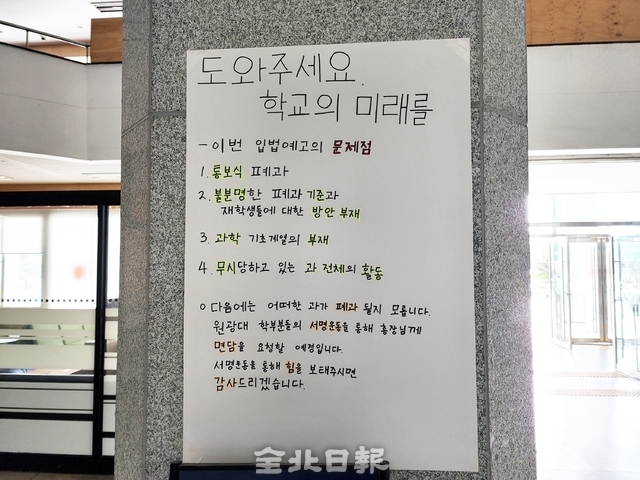 도와주세요.
학교의 미래를
- 이번 입법예고의 문제점
1. 통보식 폐과
2. 불분명한 폐과 기준과
재학생들에 대한 방안 부재
3. 과학 기초계열의 부재
4. 무시당하고 있는 과 전체의 활동
○ 다음에는 어떠한 과가 폐과 될지 모릅니다.
원광대 학부분들의 서명운동을 통해 총장님께
면담을 요청할 예정입니다.
서명운동을 통해 힘을 보태주시면
감사드리겠습니다.
全北日報